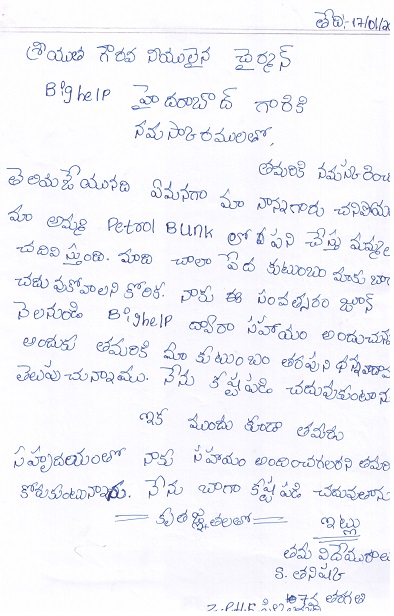 తేది:-17/01/20
శ్రీయుత గౌరవ నియులైన ఛైర్మన్
Bighelp హైదరాబాద్ గారికి
నమస్కారములతో,
తమరికి నమస్కరించి
తెలియజేయునది ఏమనగా మా నాన్నగారు చనిపోయి
మా అమ్మ Petrol Bunk లో పని చేస్తు మమ్ములను
చదివి స్తుంది. మాది చాలా పేద కుటుంబం మాకు బాగా
చదువుకోవాలని కోరిక. నాకు ఈ సంవత్సరం జూన్
నెలనుండి Bighelp ద్వారా సహాయం అందుచున్న
అందుకు తమరికి మా కుటుంబం తరపున ధన్యవాదాలు
తెలుపు చున్నాము. నేను కష్టపడి చదువుకుంటాను
ఇక ముందు కూడా తమరు
సహృదయంతో నాకు సహాయం అందించగలరని తమరిని
కోరుకుంటున్నాను. నేను బాగా కష్ట పడి చదువుతాను
కృతజ్ఞతలతో ఇట్లు
తమ విదేయురాలు
S. తనిషా
7వ తరగతి